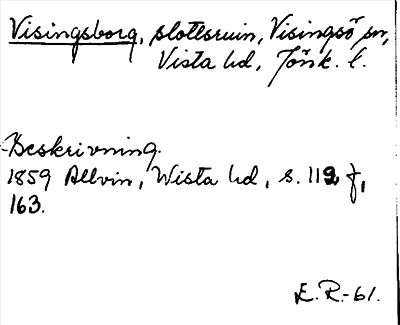 Visingsborg, slottsruin, Visingsö sn,
Vista hd, Jönk. l.
Beskrivning.
1859 Allvin, Wista hd, s. 112 f,
163.
E.R.-61.